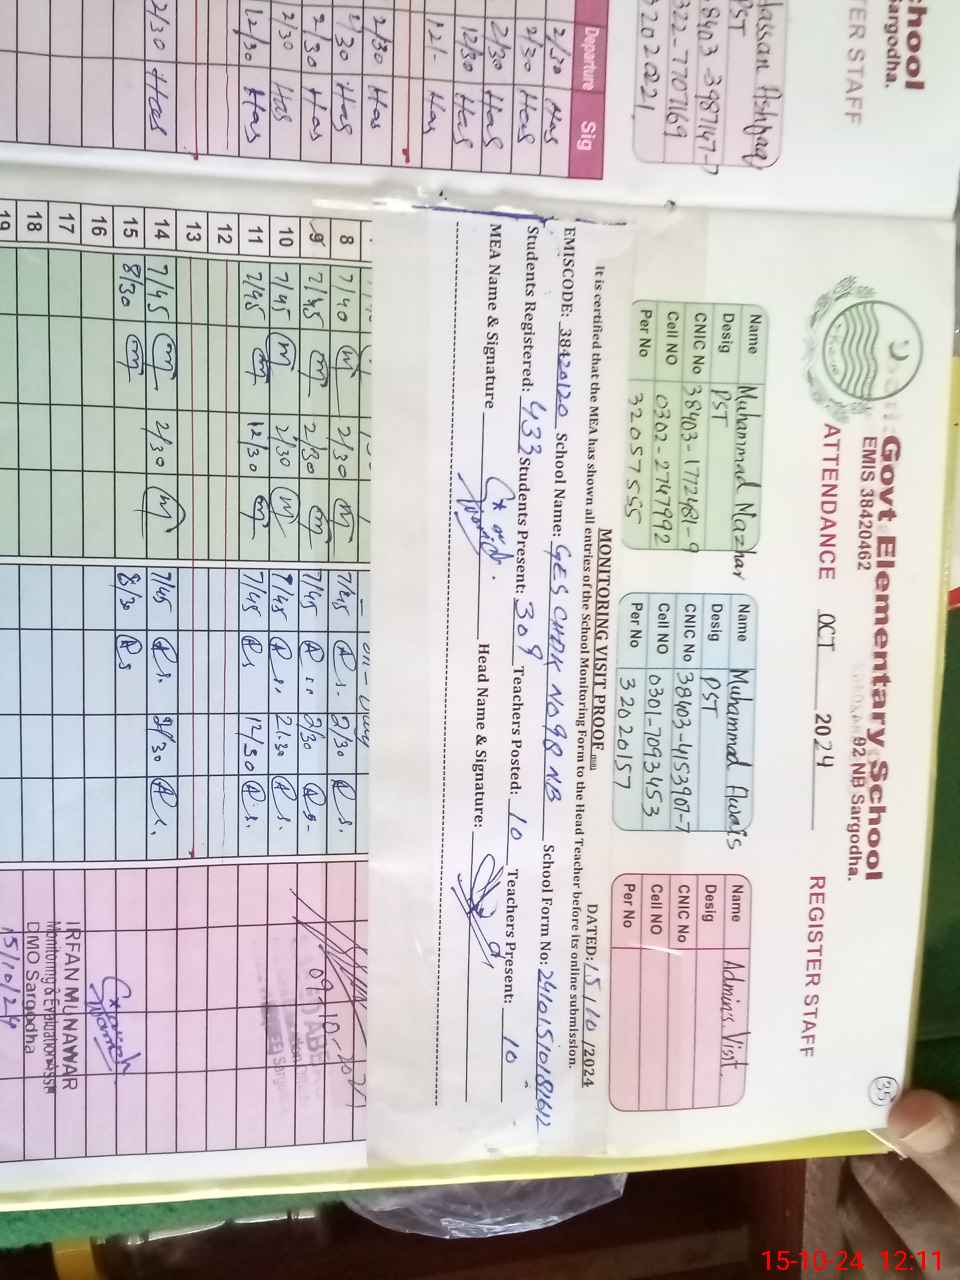 Govt Elementary School
EMIS 38420462
92 NB Sargodha.
35
ATTENDANCE OCT 2024 REGISTER STAFF
Name Muhammad Mazhar
Desig PST
CNIC No 38403-1772481-9
Cell NO 0302-2747992
Per No 32057555
Name Muhammad Awais
Desig PST
CNIC No 38403-4153907-7
Cell NO 0301-7093453
Per No 32020157
Name Admin's Visit.
Desig
CNIC No
Cell NO
Per No
MONITORING VISIT PROOF
DATED: 15/10/2024
It is certified that the MEA has shown all entries of the School Monitoring Form to the Head Teacher before its online submission.
EMISCODE: 38420120 School Name: GES CHAK NO 98 NB School Form No: 24101510181612
Students Registered: 433 Students Present: 309 Teachers Posted: 10 Teachers Present: 10
MEA Name & Signature Head Name & Signature:
8 7/40 2/30 7/45 2/30
9 7/45 2/30 7/45 2/30
10 7/45 2/30 7/45 2.30
11 7/45 12/30 7/45 12/30
12
13
14 7/45 2/30 7/45 2/30
15 8/30 8/30
16
17
18
19
09-10-2024
IRFAN MUNAWAR
Monitoring & Evaluation Asst
DMO Sargodha
15/10/24
chool
Sargodha.
TER STAFF
Hassan Ashfaq
PST
8403-3987147-7
322-7707169
3202021
Departure Sig
2/30 Has
2/30 Has
2/30 Has
12/30 Has
12/- Has
2/30 Has
2/30 Has
2/30 Has
2/30 Has
12/30 Has
2/30 Has
15-10-24 12:11